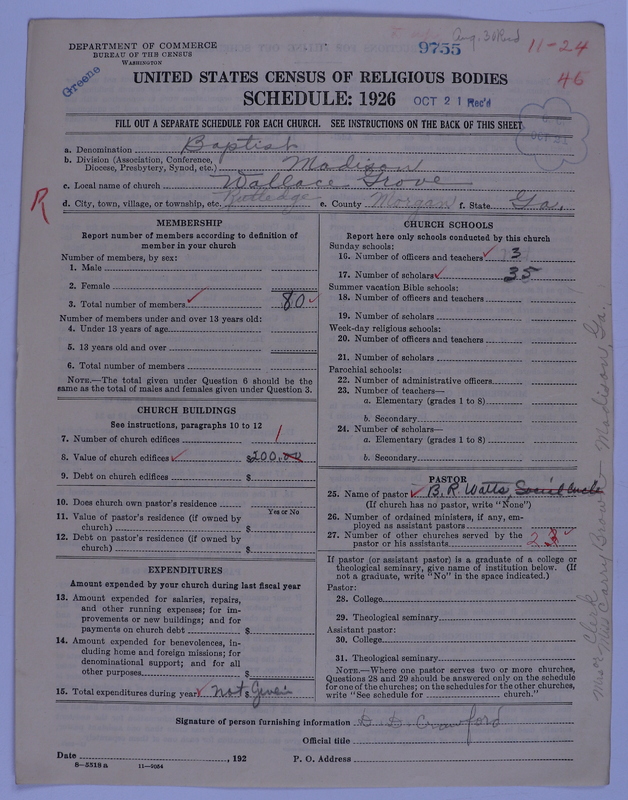 Aug. 30 Recd
DEPARTMENT OF COMMERCE
BUREAU OF THE CENSUS
WASHINGTON
9755
11-24
46
Greene
UNITED STATES CENSUS OF RELIGIOUS BODIES
SCHEDULE: 1926
OCT 21 Rec'd
FILL OUT A SEPARATE SCHEDULE FOR EACH CHURCH. SEE INSTRUCTIONS ON THE BACK OF THIS SHEET
OCT 21
a. Denomination Baptist
b. Division (Association, Conference, Diocese, Presbytery, Synod, etc.) Madison
c. Local name of church Wallace Grove
d. City, town, village, or township, etc. Rutledge e. County Morgan f. State Ga.
R
MEMBERSHIP
Report number of members according to definition of
member in your church
Number of members, by sex:
1. Male
2. Female
3. Total number of members 80
Number of members under and over 13 years old:
4. Under 13 years of age
5. 13 years old and over
6. Total number of members
NOTE.—The total given under Question 6 should be the
same as the total of males and females given under Question 3.
CHURCH BUILDINGS
See instructions, paragraphs 10 to 12
7. Number of church edifices 1
8. Value of church edifices $200.00
9. Debt on church edifices $
10. Does church own pastor's residence
Yes or No
11. Value of pastor's residence (if owned by
church) $
12. Debt on pastor's residence (if owned by
church) $
EXPENDITURES
Amount expended by your church during last fiscal year
13. Amount expended for salaries, repairs,
and other running expenses; for im-
provements or new buildings; and for
payments on church debt $
14. Amount expended for benevolences, in-
cluding home and foreign missions; for
denominational support; and for all
other purposes $
15. Total expenditures during year $ not Given
CHURCH SCHOOLS
Report here only schools conducted by this church
Sunday schools:
16. Number of officers and teachers 3
17. Number of scholars 35
Summer vacation Bible schools:
18. Number of officers and teachers
19. Number of scholars
Week-day religious schools:
20. Number of officers and teachers
21. Number of scholars
Parochial schools:
22. Number of administrative officers
23. Number of teachers—
a. Elementary (grades 1 to 8)
b. Secondary
24. Number of scholars—
a. Elementary (grades 1 to 8)
b. Secondary
PASTOR
25. Name of pastor B. R. Watts, Social Circle
(If church has no pastor, write "None")
26. Number of ordained ministers, if any, em-
ployed as assistant pastors
27. Number of other churches served by the
pastor or his assistants
If pastor (or assistant pastor) is a graduate of a college or
theological seminary, give name of institution below. (If
not a graduate, write "No" in the space indicated.)
Pastor:
28. College
29. Theological seminary
Assistant pastor:
30. College
31. Theological seminary
NOTE.—Where one pastor serves two or more churches,
Questions 28 and 29 should be answered only on the schedule
for one of the churches; on the schedules for the other churches,
write "See schedule for church."
Clerk
Miss Carry Brown - Madison, Ga.
Signature of person furnishing information D. D. Crawford
Official title
Date , 192
P. O. Address
8-5518 a
11-9054